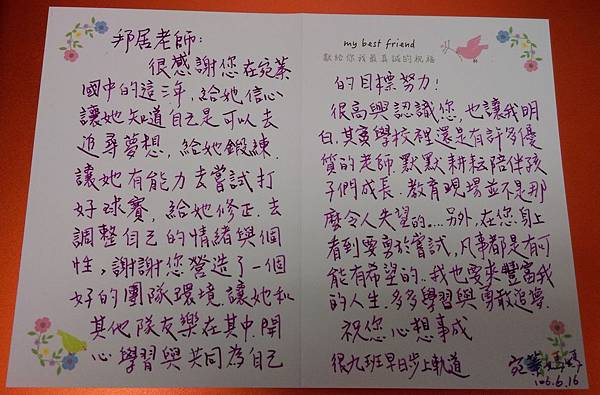 邦居老師:
很感謝您在宛蓁
國中的這三年,給她信心
讓她知道自己是可以去
追尋夢想,給她鍛練.
讓她有能力去嘗試打
好球賽,給她修正.去
調整自己的情緒與個
性,謝謝您營造了一個
好的團隊環境讓她和
其他隊友樂在其中.開
心學習與共同為自己
my best friend
獻給你我最真誠的祝福
的目標努力!
很高興認識您,也讓我明
白.其實學校裡還是有許多優
質的老師.默默耕耘陪伴孩
子們成長.教育現場並不是那
麼令人失望的....另外,在您身上
看到要勇於嘗試,凡事都是有可
能有希望的.我也要來豐富我
的人生.多多學習與勇敢追夢.
祝您心想事成
很九班早日步上軌道
宛蓁媽媽
106.6.16